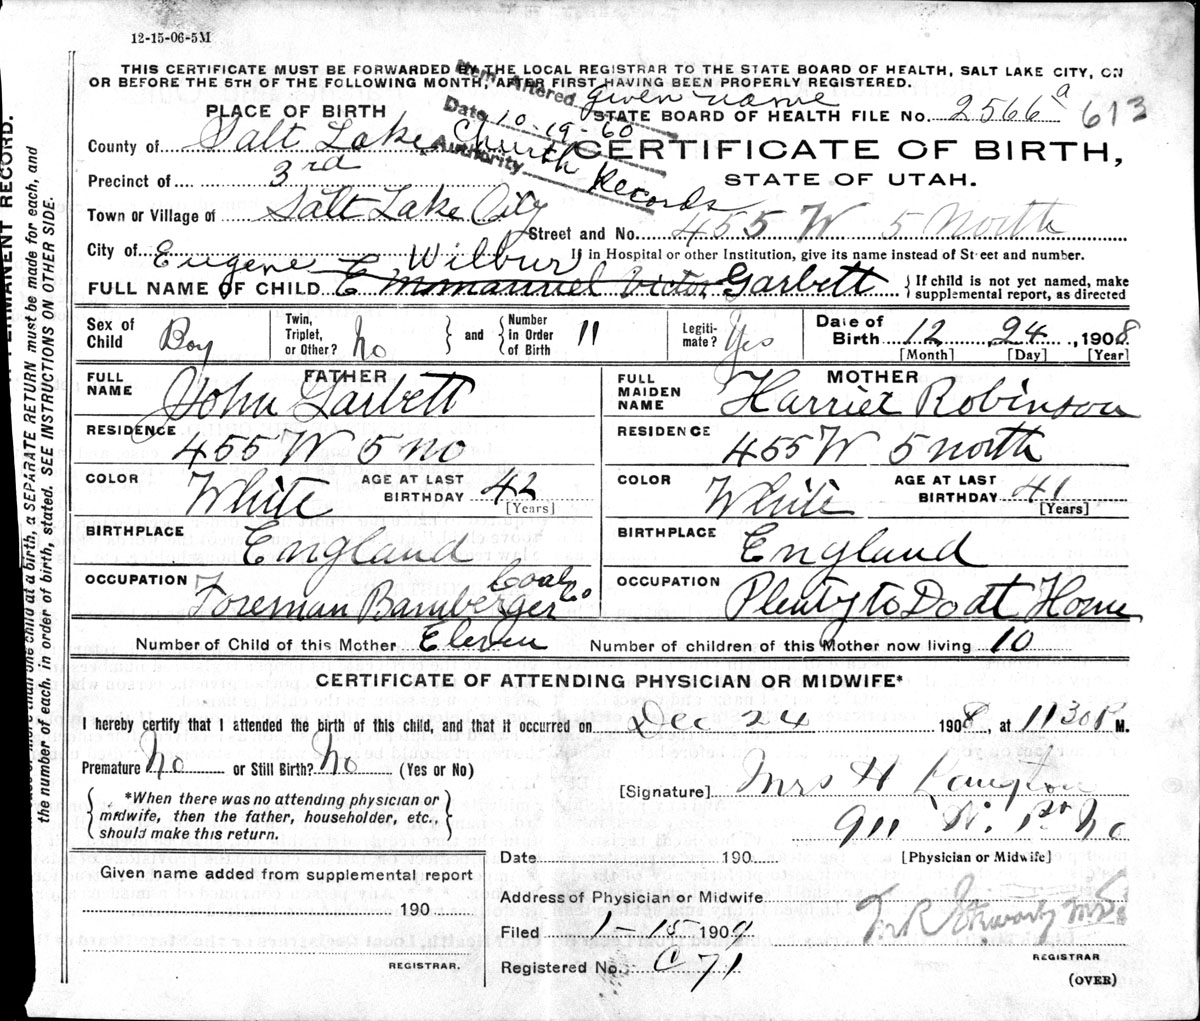 12-15-06-5M
THIS CERTIFICATE MUST BE FORWARDED BY THE LOCAL REGISTRAR TO THE STATE BOARD OF HEALTH, SALT LAKE CITY, ON
OR BEFORE THE 5TH OF THE FOLLOWING MONTH, AFTER FIRST HAVING BEEN PROPERLY REGISTERED.
Item Altered Given name
Date 10-19-60
Authority Church Records
PLACE OF BIRTH
STATE BOARD OF HEALTH FILE No. 2566 a 613
County of Salt Lake
CERTIFICATE OF BIRTH,
STATE OF UTAH.
Precinct of 3rd
Town or Village of Salt Lake City
Street and No. 455 W 5 North
City of
If in Hospital or other Institution, give its name instead of Street and number.
Eugene Wilbur
FULL NAME OF CHILD E Emmanuel Victor Garbett
If child is not yet named, make
supplemental report, as directed
Sex of Child Boy
Twin, Triplet, or Other? No and Number in Order of Birth 11
Legitimate? Yes
Date of Birth 12 24, 1908
[Month] [Day] [Year]
FATHER
FULL NAME John Garbett
MOTHER
FULL MAIDEN NAME Harriet Robinson
RESIDENCE 455 W 5 No
RESIDENCE 455 W 5 North
COLOR White AGE AT LAST BIRTHDAY 42 [Years]
COLOR White AGE AT LAST BIRTHDAY 41 [Years]
BIRTHPLACE England
BIRTHPLACE England
OCCUPATION Foreman Bamberger Coal Co
OCCUPATION Plenty to Do at Home
Number of Child of this Mother Eleven
Number of children of this Mother now living 10
CERTIFICATE OF ATTENDING PHYSICIAN OR MIDWIFE*
I hereby certify that I attended the birth of this child, and that it occurred on Dec 24 1908, at 11 30 P M.
Premature No or Still Birth? No (Yes or No)
*When there was no attending physician or
midwife, then the father, householder, etc.,
should make this return.
[Signature] Mrs H Langton
911 W. 1st No
[Physician or Midwife]
Date 190
Given name added from supplemental report
190
REGISTRAR.
Address of Physician or Midwife
Filed 1-15 1909
REGISTRAR
Registered No. C 71
(OVER)
PERMANENT RECORD.
more than one child at a birth, a SEPARATE RETURN must be made for each, and
the number of each, in order of birth, stated. SEE INSTRUCTIONS ON OTHER SIDE.